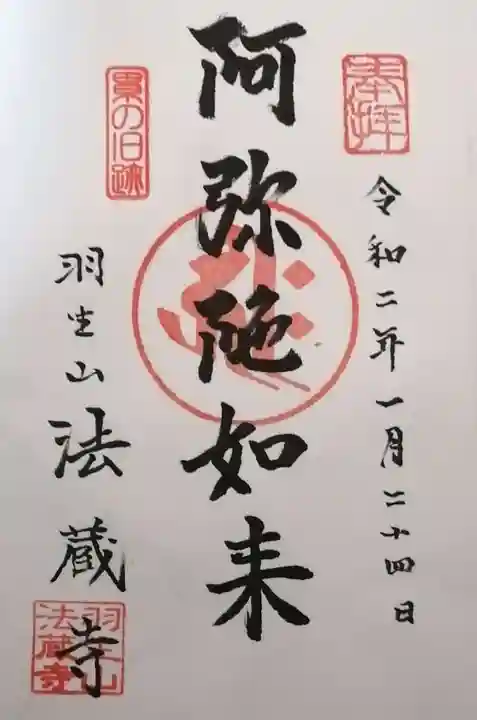 奉拝
令和二年一月二十四日
阿弥陀如来
累の旧跡
羽生山法蔵寺
羽生山
法蔵寺